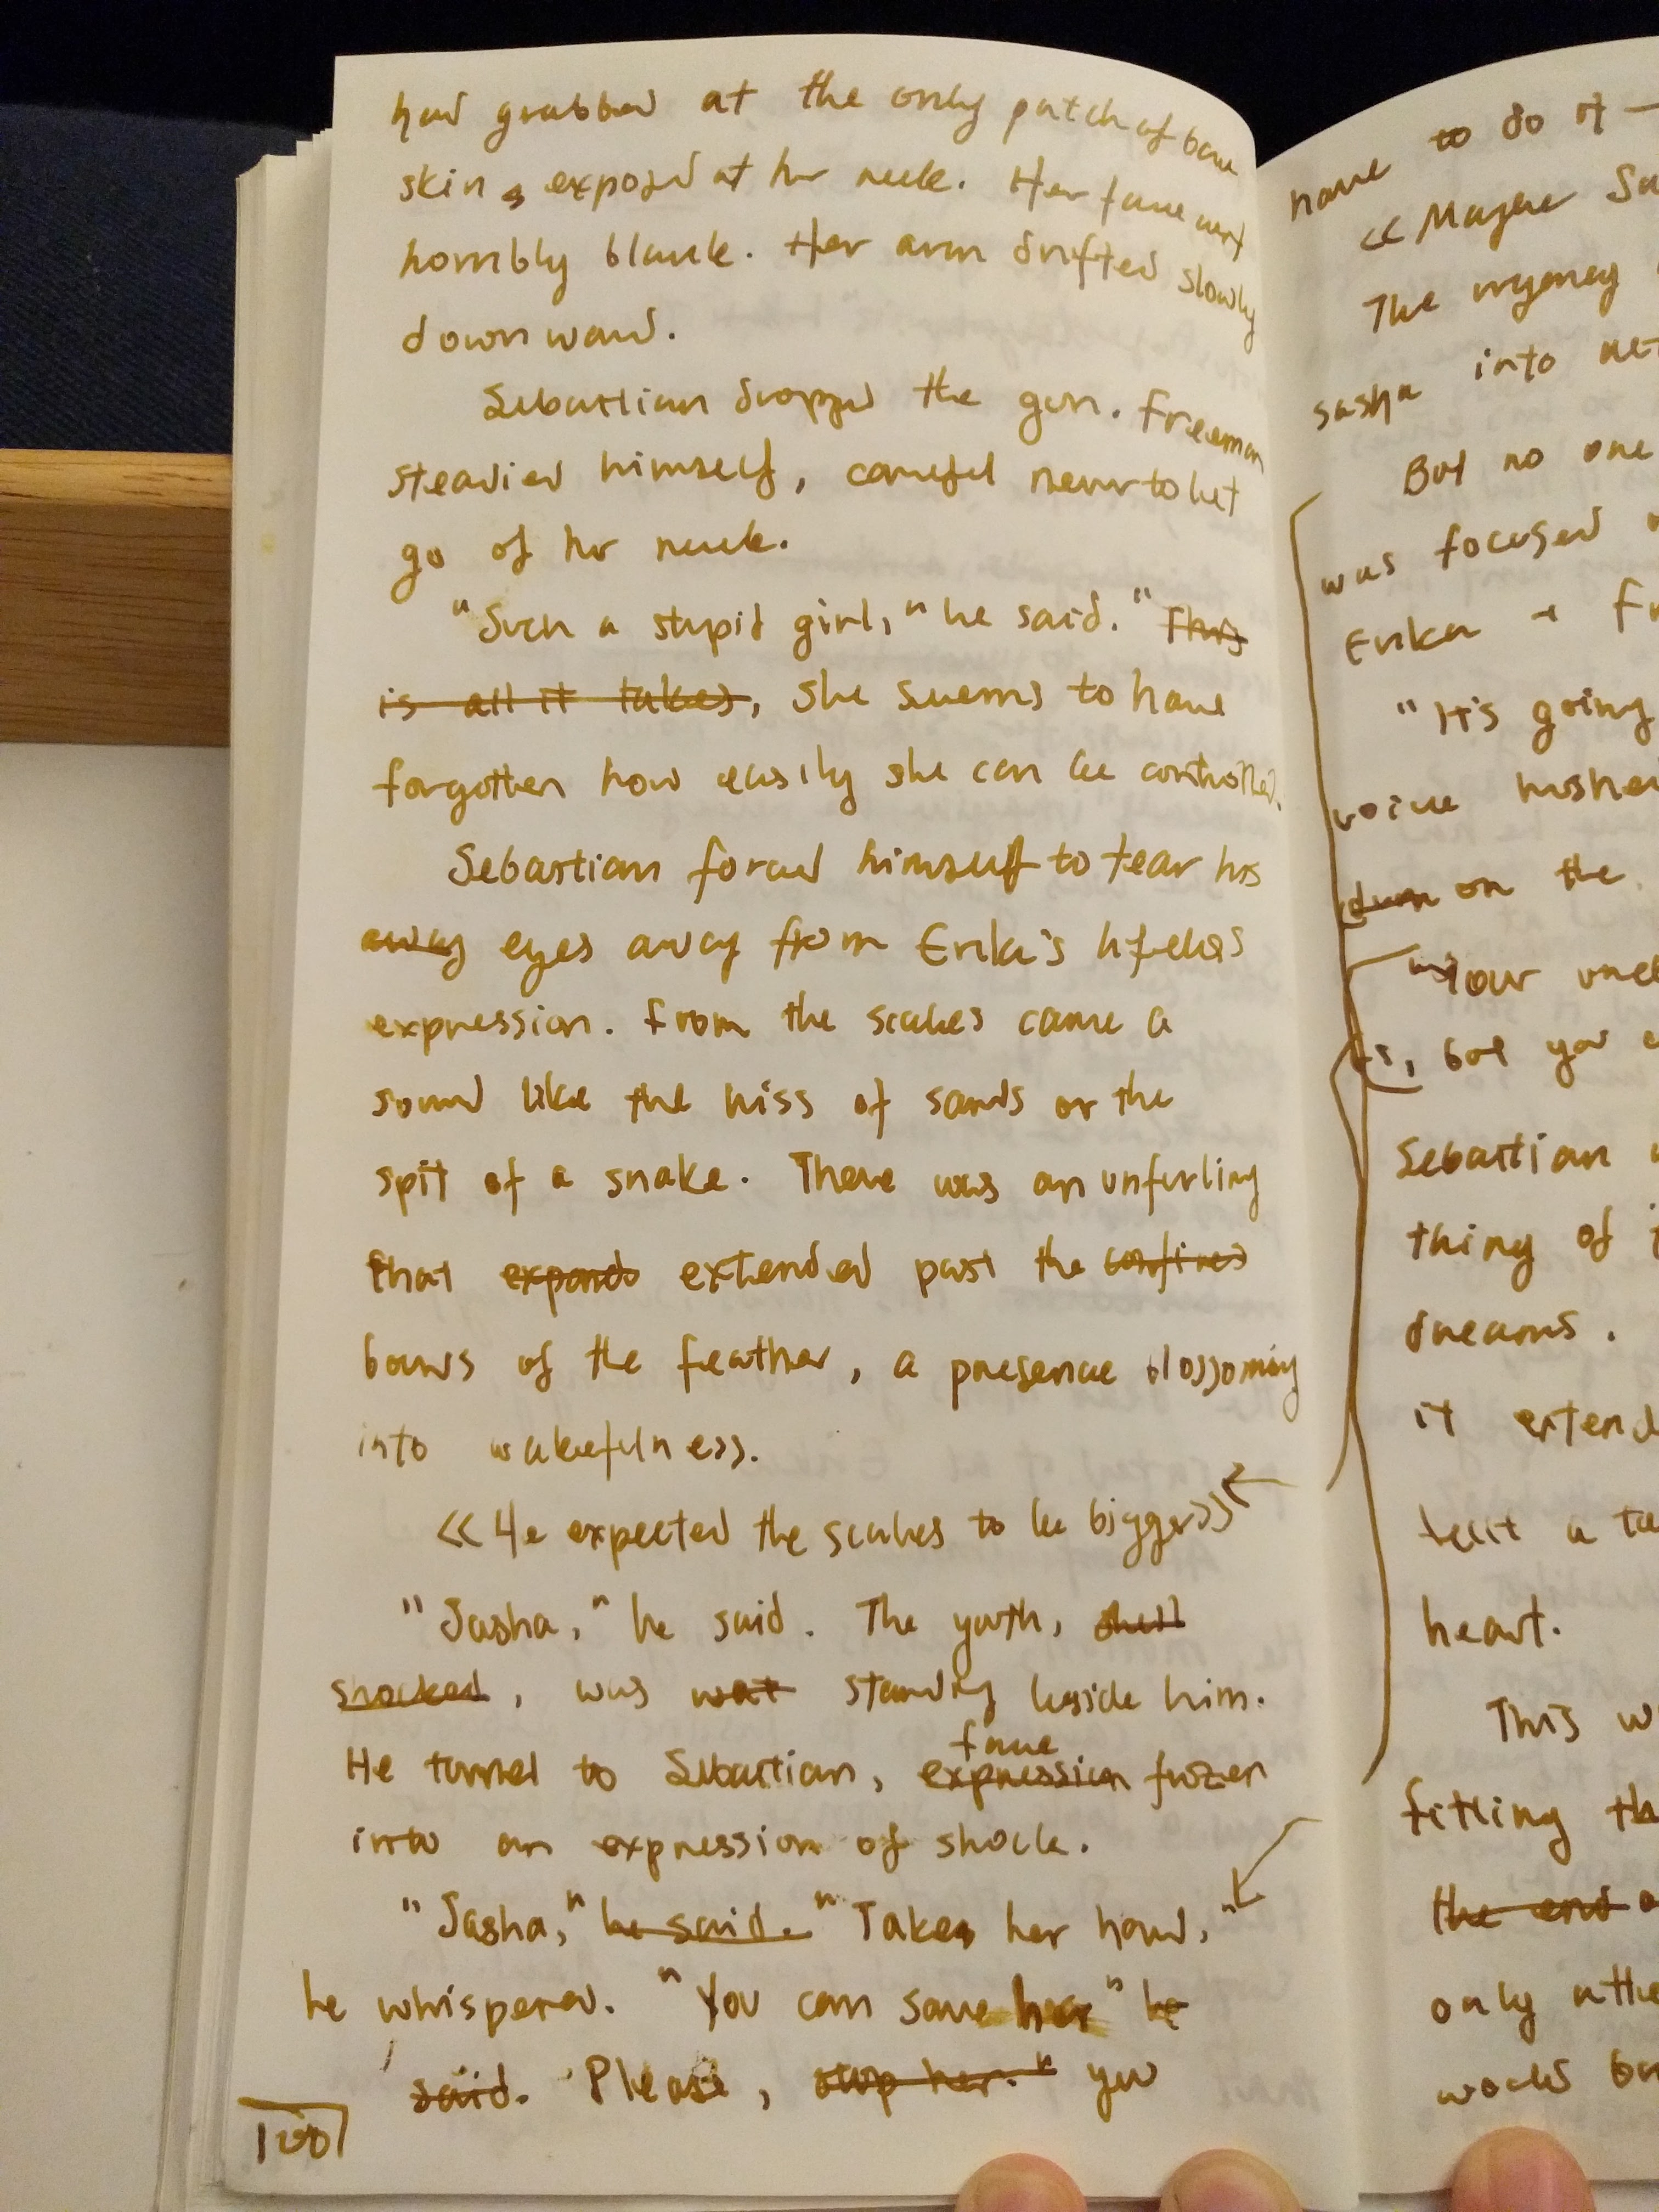 had grabbed at the only patch of bare
skin, exposed at her neck. Her face went
horribly blank. Her arm drifted slowly
downward.
Sebastian dropped the gun. Freeman
steadied himself, careful never to let
go of her neck.
"Such a stupid girl," he said. "This
is all it takes, She seems to have
forgotten how easily she can be controlled.
Sebastian forced himself to tear his
away eyes away from Erika's lifeless
expression. From the scales came a
sound like the hiss of sands or the
spit of a snake. There was an unfurling
that expands extended past the confines
bows of the feather, a presence blossoming
into wakefulness.
<<He expected the scales to be bigger>>
"Sasha," he said. The youth, shell
shocked, was wat standing beside him.
face
He turned to Sebastian, expression frozen
into an expression of shock.
"Sasha," he said. "Take her hand,"
he whispered. "You can save her" he
said. Please, stop her." you
100
have to do it —
<< Maybe Sa
The urgency
sasha into act
But no one
was focused
Erika + Fr
"It's going
voice hushed
down on the
"Your uncl
is, but you c
Sebastian
thing of t
dreams.
it extend
felt a ta
heart.
This w
fitting th
the end
only
would